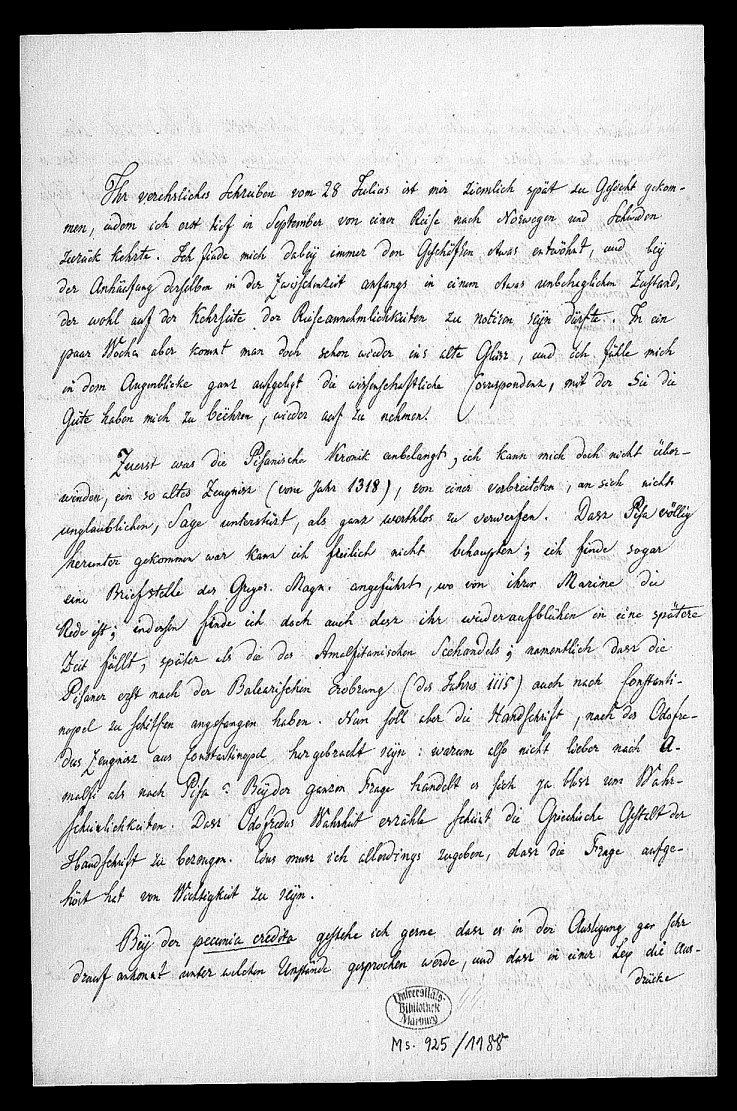 Ihr verehrliches Schreiben vom 28 Julius ist mir ziemlich spät zu Gesicht gekom-
men, indem ich erst tief in September von einer Reise nach Norwegen und Schweden
zurück kehrte. Ich finde mich dabey immer den Geschäften etwas entwöhnt, und bey
der Anhäufung derselben in der Zwischenzeit anfangs in einem etwas unbehaglichen Zustand,
der wohl auf der Kehrseite der Reiseannehmlichkeiten zu notiren seyn dürfte. In ein
paar Wochen aber kommt man doch schon wieder ins alte Gleise, und ich fühle mich
in dem Augenblicke ganz aufgelegt die wissenschaftliche Correspondenz, mit der Sie die
Güte haben mich zu beehren, wieder auf zu nehmen.
Zuerst was die Pisanische Kronik anbelangt, ich kann mich doch nicht über-
winden, ein so altes Zeugniss (vom Jahr 1318), von einer verbreiteten, an sich nicht
unglaublichen, Sage unterstüzt, als ganz werthlos zu verwerfen. Dasz Pisa völlig
herunter gekommen war kann ich freilich nicht behaupten; ich finde sogar
eine Briefstelle des Gregor. Magn. angeführt, wo von ihrer Marine die
Rede ist; indessen finde ich doch auch dasz ihr wiederaufblühen in eine spätere
Zeit fällt, später als die des Amalfitanischen Seehandels; namentlich dasz die
Pisaner erst nach der Balearischen Erobrung (des Jahres 1115) auch nach Constanti-
nopel zu schiffen angefangen haben. Nun soll aber die Handschrift, nach des Odofre-
dus Zeugniss aus Constantinopel hergebracht seyn: warum also nicht lieber nach A-
malfi als nach Pisa? Bey der ganzen Frage handelt es sich ja blosz um Wahr-
scheinlichkeiten. Dasz Odofredus Wahrheit erzähle scheint die Griechische Gestalt der
Handschrift zu bezeugen. Eins musz ich allerdings zugeben, dasz die Frage aufge-
hört hat von Wichtigkeit zu seyn.
Bey der pecunia credita gestehe ich gerne dasz es in der Auslegung gar sehr
drauf ankommt unter welchen Umständen gesprochen werde, und dasz in einer Lex die Aus-
drücke
Universitäts-
Bibliothek
Marburg
Ms. 925/1188